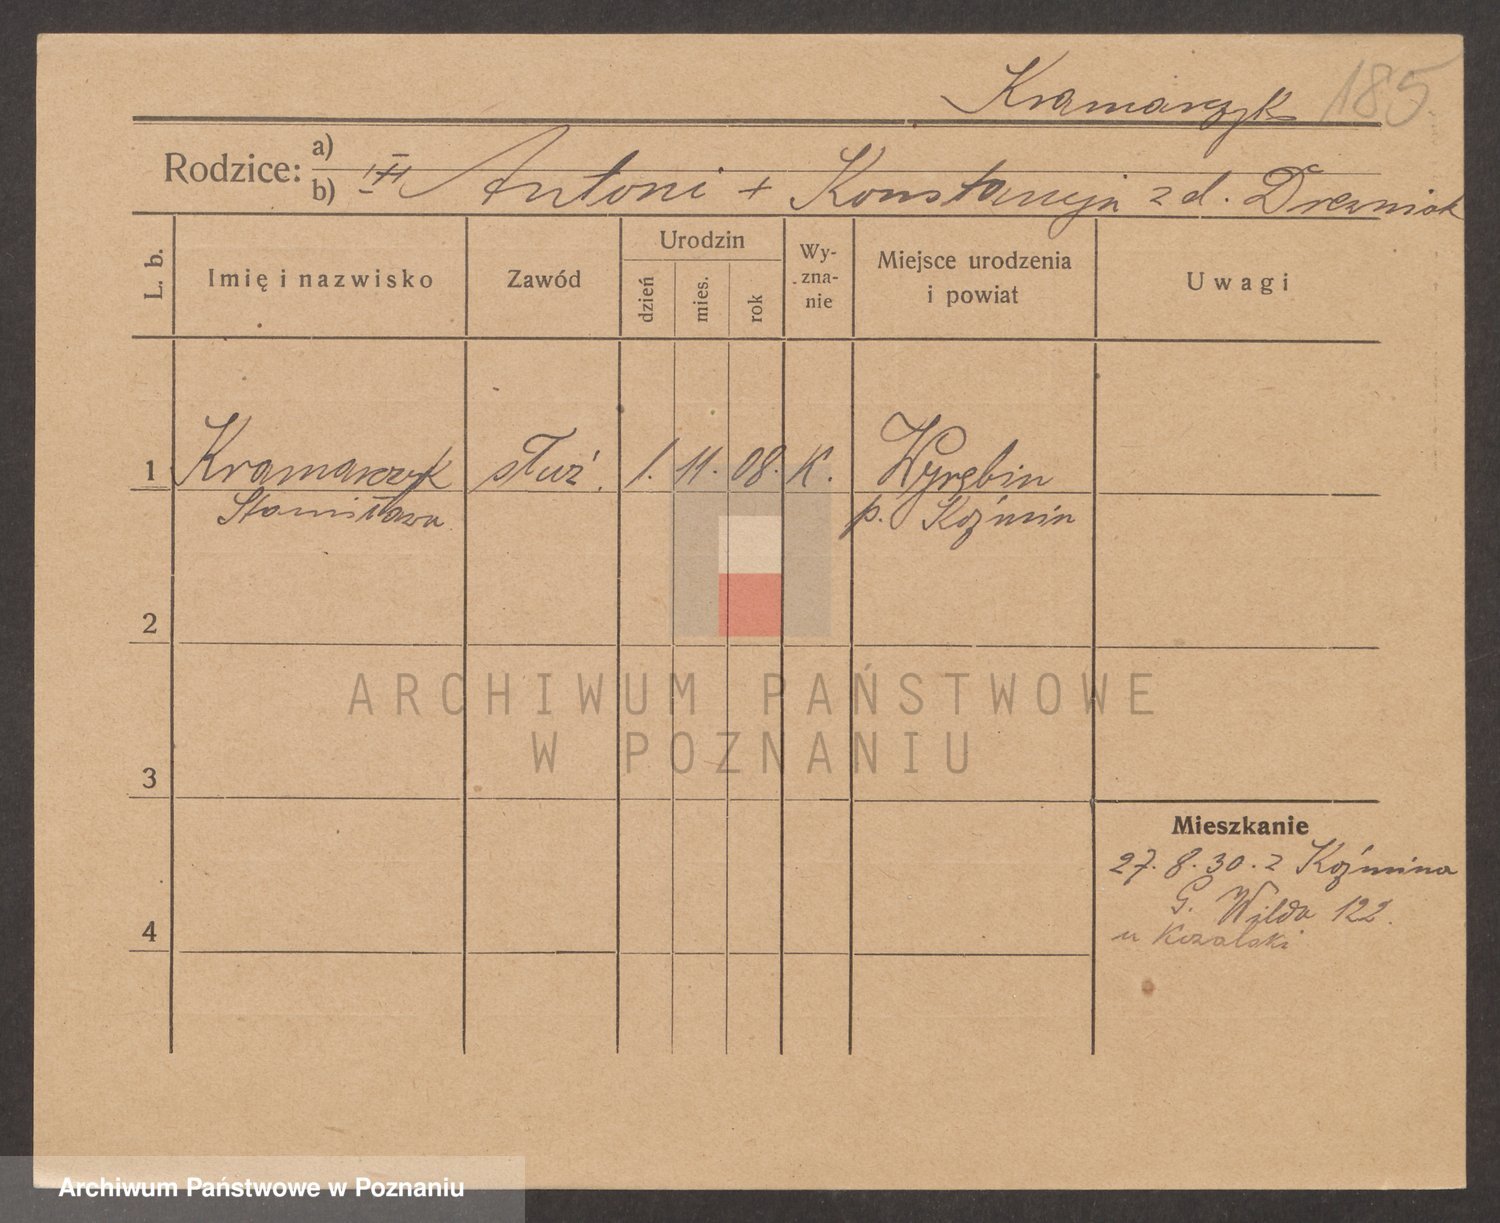 Kramarczyk 185
Rodzice: a)
b) Antoni + Konstancja z d. Drewniak
L. b.
Imię i nazwisko
Zawód
Urodzin
dzień
mies.
rok
Wy-
zna-
nie
Miejsce urodzenia
i powiat
Uwagi
1 Kramarczyk służ. 1. 11. 08. K. Wyrębin
Stanisława p. Koźmin
2
ARCHIWUM PAŃSTWOWE
W POZNANIU
3
Mieszkanie
27. 8. 30. z Koźmina
G. Wilda 122.
4 u Kozalski
Archiwum Państwowe w Poznaniu